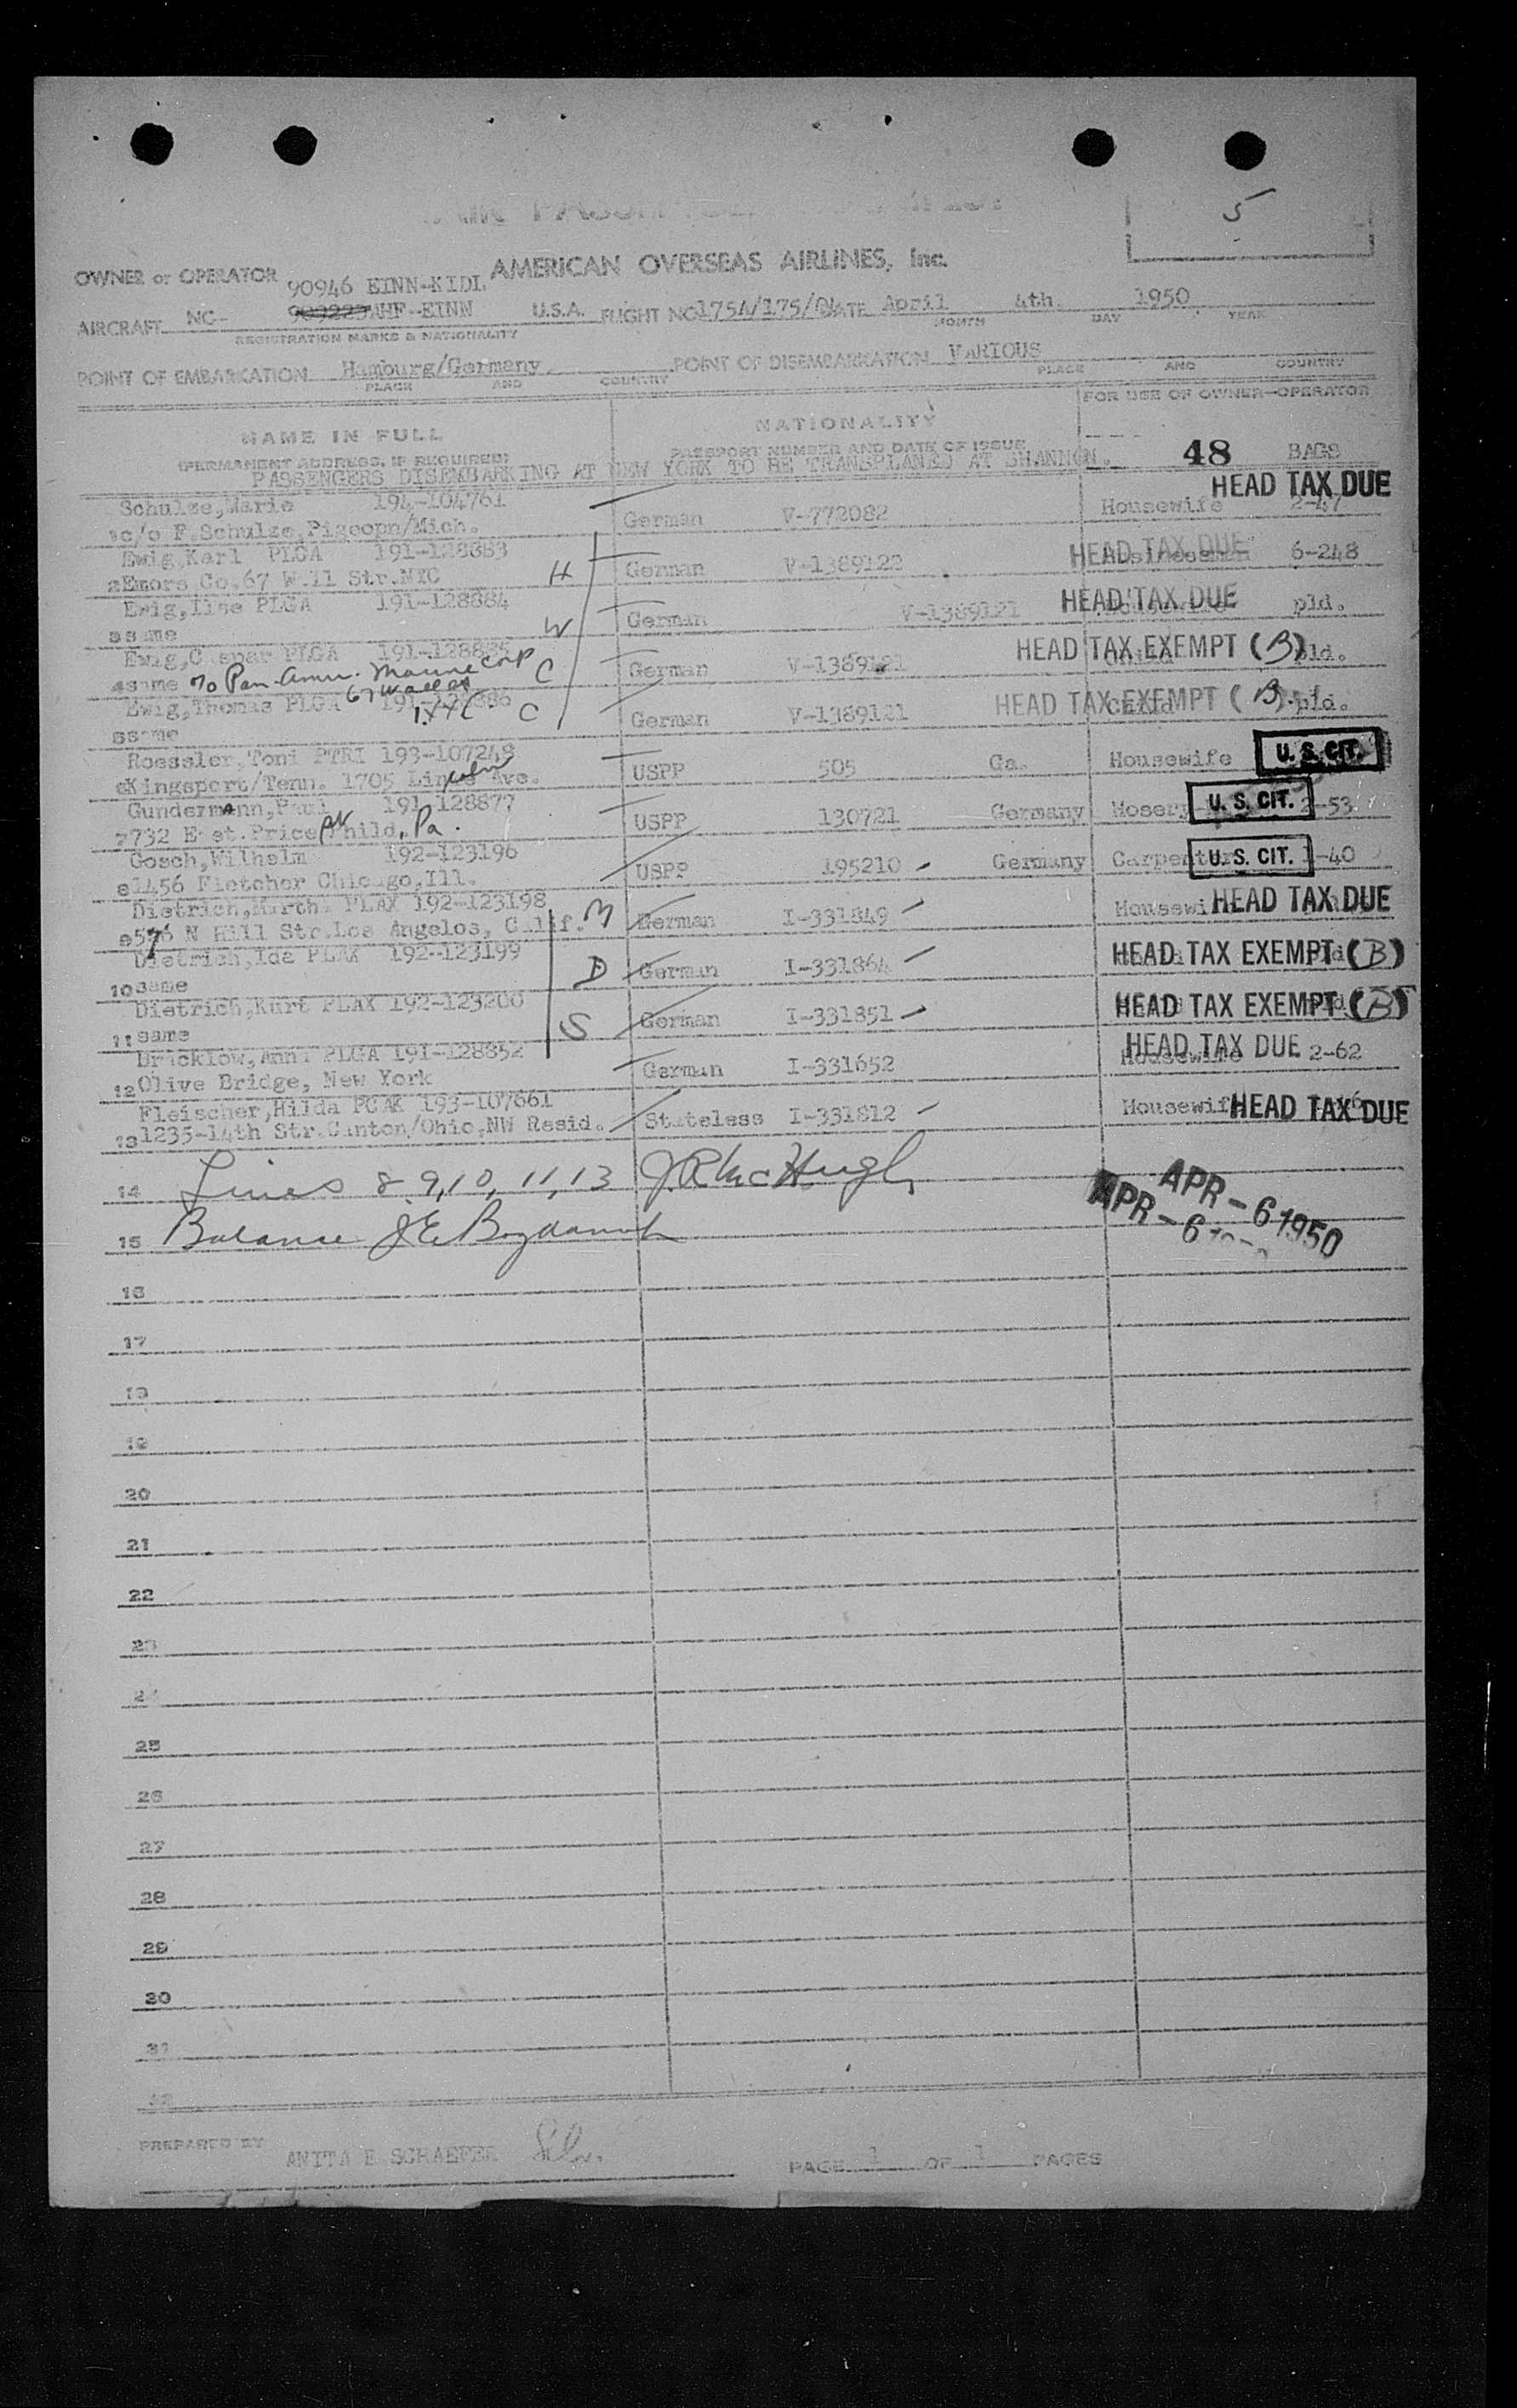 5
AMERICAN OVERSEAS AIRLINES, Inc.
OWNER or OPERATOR
90946 EINN-KIDL
AIRCRAFT NC- AHF-EINN U.S.A. FLIGHT NO 175A/175/ DATE April 4th 1950
REGISTRATION MARKS & NATIONALITY MONTH DAY YEAR
POINT OF EMBARKATION Hamburg/Germany. POINT OF DISEMBARKATION VARIOUS
PLACE AND COUNTRY PLACE AND COUNTRY
FOR USE OF OWNER-OPERATOR
NAME IN FULL NATIONALITY
(PERMANENT ADDRESS, IF REQUIRED) PASSPORT NUMBER AND DATE OF ISSUE 48 BAGS
PASSENGERS DISEMBARKING AT NEW YORK TO BE TRANSPLANED AT SHANNON.
HEAD TAX DUE
Schulze, Marie 194-104761 German V-772082 Housewife 2-47
1 c/o F.Schulze, Pigeopn/Mich.
Ewig, Karl PLGA 191-128883 H German V-1389122 HEAD TAX DUE 6-248
2 Emors Co. 67 Wall Str. NYC
Ewig, Ilse PLGA 191-128884 W German V-1389121 HEAD TAX DUE pld.
3 same
Ewig, Caspar PLGA C German V-1389121 HEAD TAX EXEMPT (B) pld.
4 same % Pan-Amer. Marine Corp
Ewig, Thomas PLGA C German V-1389121 Child HEAD TAX EXEMPT (B) pld.
5 same
Roessler, Toni PTRI 193-107248 USPP 505 Ga. Housewife U.S. CIT.
6 Kingsport/Tenn. 1705 Ave.
Gundermann, Paul 191-128877 USPP 130721 Germany U.S. CIT. 2-53
7 732 East. Price Phild., Pa.
Gosch, Wilhelm 192-123196 USPP 195210 Germany Carpenter U.S. CIT. 1-40
8 1456 Fletcher Chicago, Ill.
Dietrich, Martha PLAX 192-123198 M German I-331849 HEAD TAX DUE
9 N Hill Str. Los Angelos, Calif.
Dietrich, Ida PLAX 192-123199 D German I-331864 HEAD TAX EXEMPT (B)
10 same
Dietrich, Kurt PLAX 192-123200 S German I-331851 HEAD TAX EXEMPT (B)
11 same
Bracklow, Anna PLGA 191-128852 German I-331652 Housewife HEAD TAX DUE 2-62
12 Olive Bridge, New York
Fleischer, Hilda PCAK 193-107661 Stateless I-331812 Housewife HEAD TAX DUE
13 1235-14th Str. Canton/Ohio, NW Resid.
14 Lines 8 9, 10, 11, 13 J.R. McHugh APR-6 1950
15 Balance APR-6
16
17
18
19
20
21
22
23
24
25
26
27
28
29
30
31
32
PREPARED BY ANITA E SCHAEFER
PAGE 1 OF 1 PAGES